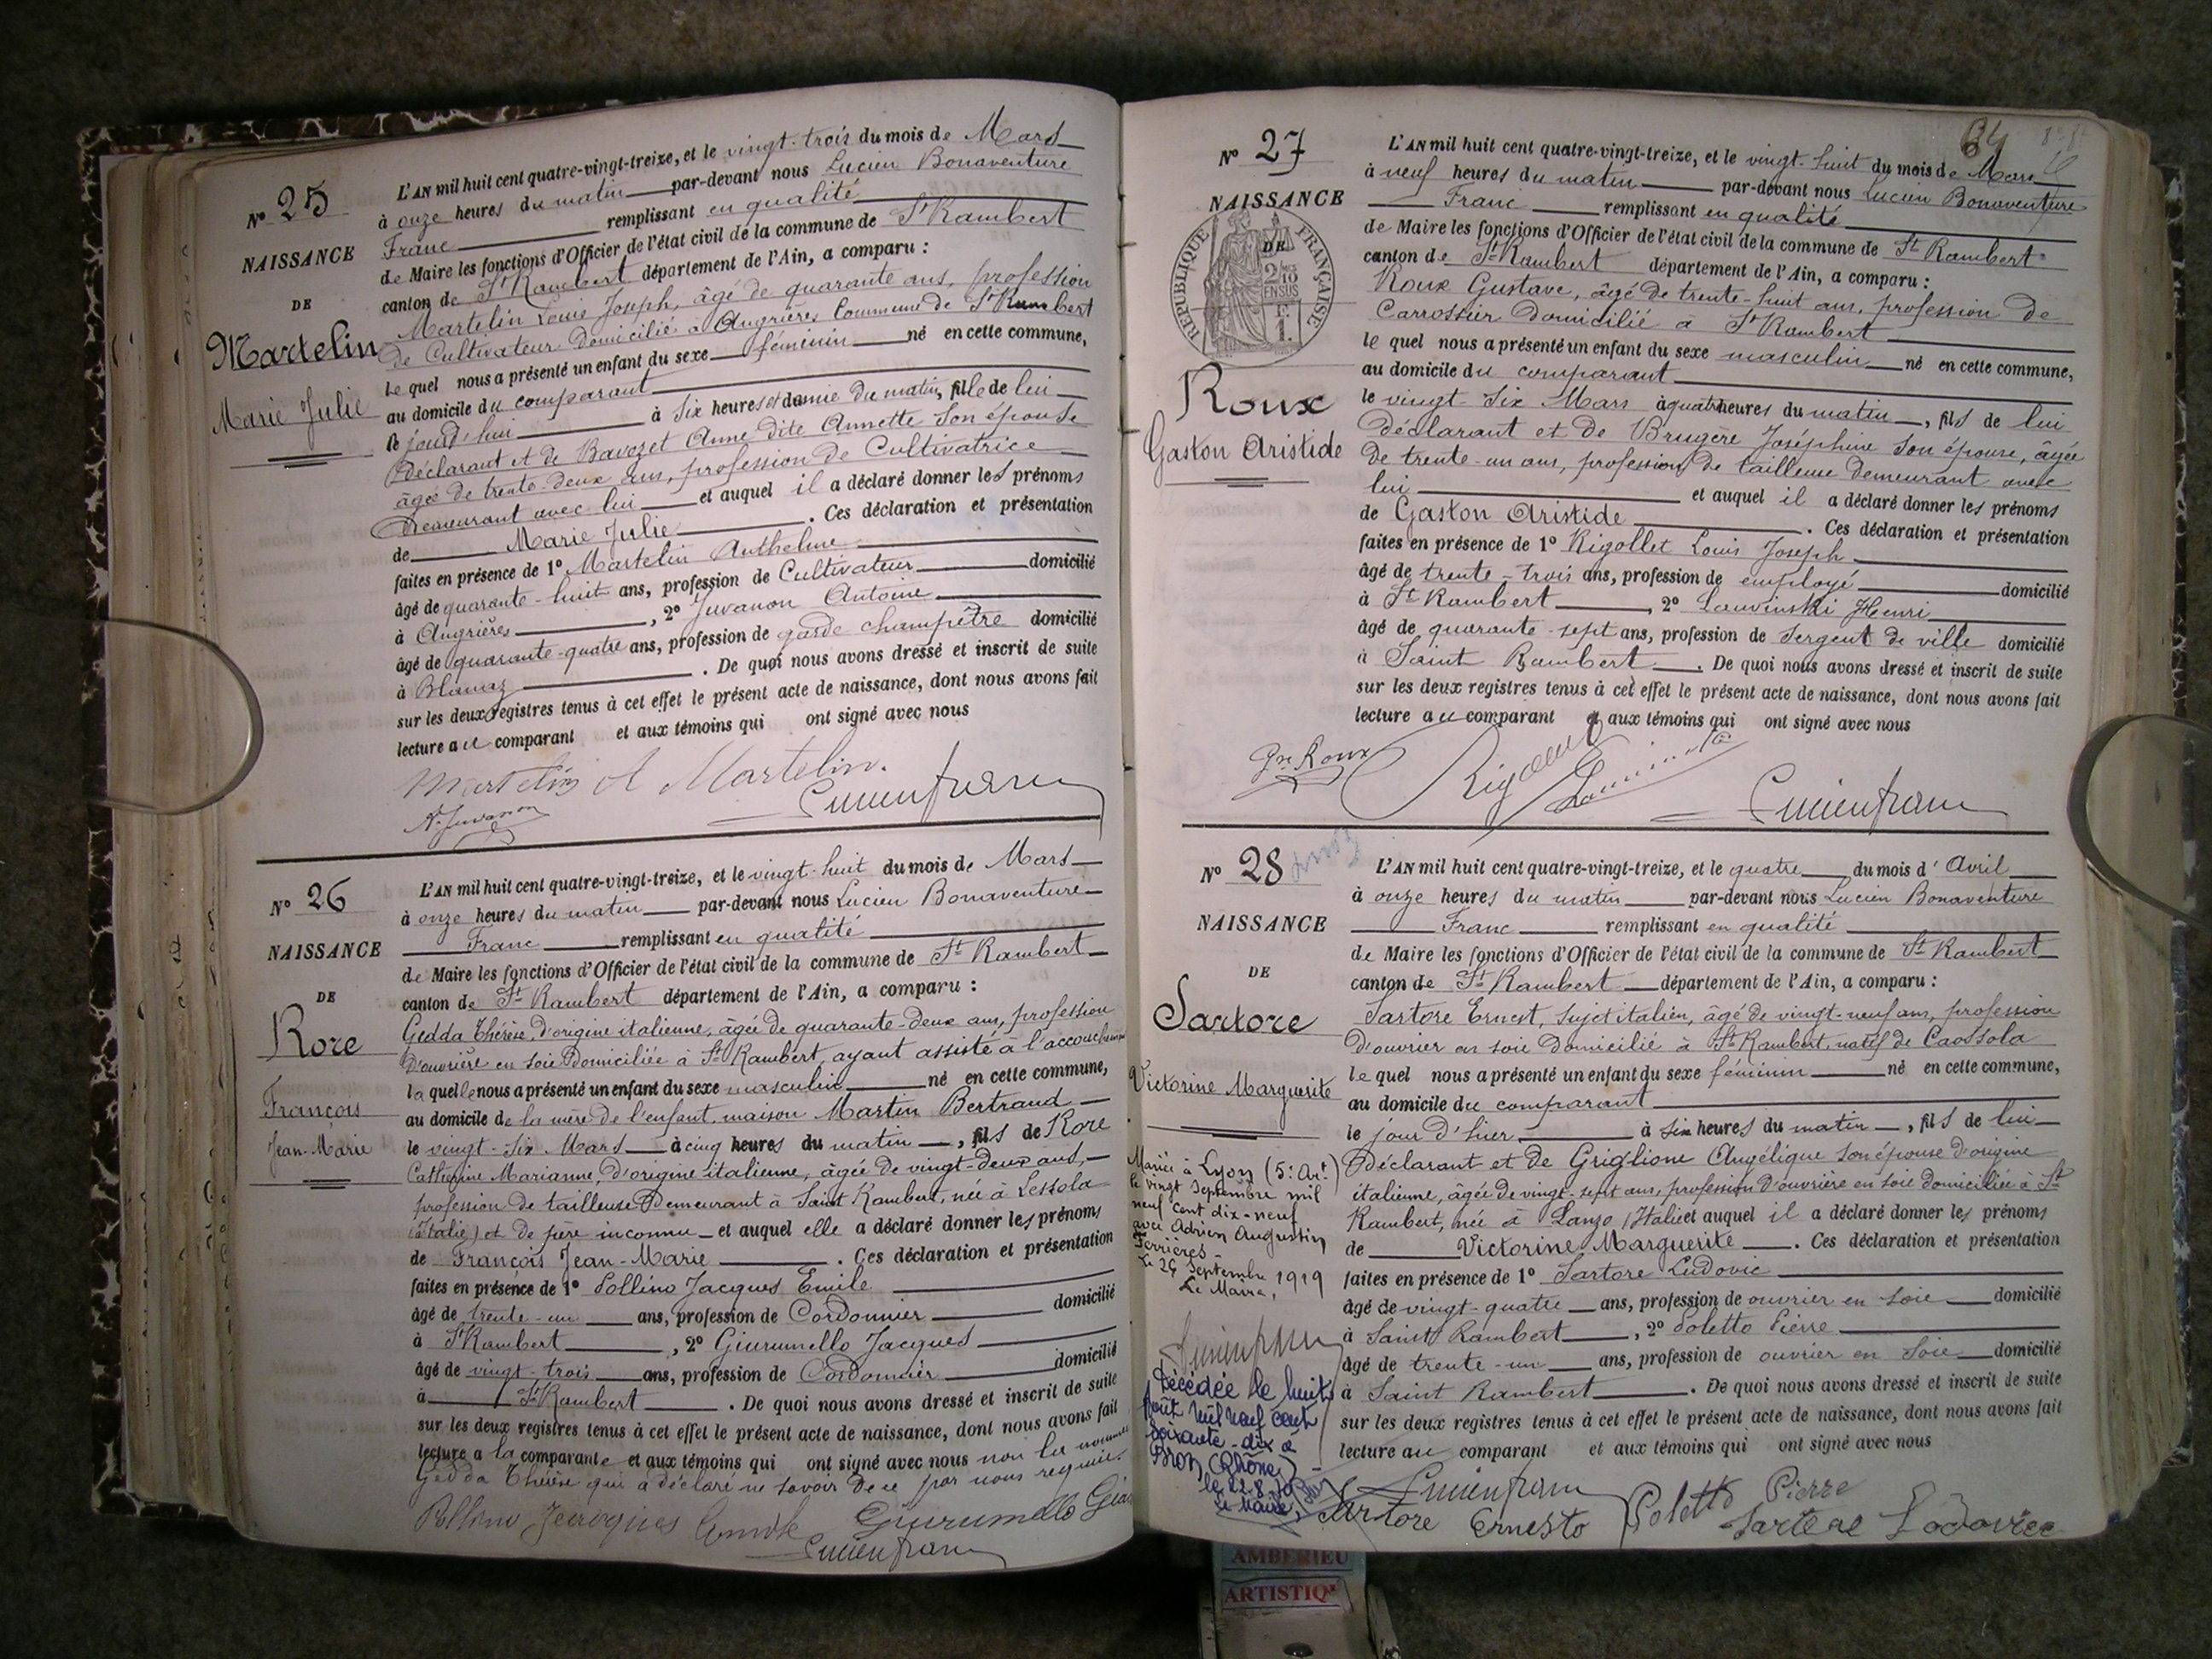 Nº 25
NAISSANCE
DE
Martelin
Marie Julie
L'AN mil huit cent quatre-vingt-treize, et le vingt-trois du mois de Mars
à onze heures du matin par-devant nous Lucien Bonaventure
Franc remplissant en qualité
de Maire les fonctions d'Officier de l'état civil de la commune de St Rambert
canton de St Rambert département de l'Ain, a comparu :
Martelin Louis Joseph, âgé de quarante ans, profession
de Cultivateur domicilié à Angrières Commune de St Rambert
lequel nous a présenté un enfant du sexe féminin né en cette commune,
au domicile du comparant
le jourd'hui à six heures et demie du matin, fille de lui
déclarant et de Bavozet Anne dite Annette son épouse
âgée de trente-deux ans, profession de Cultivatrice
demeurant avec lui et auquel il a déclaré donner les prénoms
de Marie Julie . Ces déclaration et présentation
faites en présence de 1º Martelin Anthelme
âgé de quarante-huit ans, profession de Cultivateur domicilié
à Angrières , 2º Juvanon Antoine
âgé de quarante-quatre ans, profession de garde champêtre domicilié
à Blanaz . De quoi nous avons dressé et inscrit de suite
sur les deux registres tenus à cet effet le présent acte de naissance, dont nous avons fait
lecture au comparant et aux témoins qui ont signé avec nous
Martelin A Martelin.
A. Juvanon Lucien franc
Nº 26
NAISSANCE
DE
Rore
François
Jean-Marie
L'AN mil huit cent quatre-vingt-treize, et le vingt-huit du mois de Mars
à onze heures du matin par-devant nous Lucien Bonaventure
Franc remplissant en qualité
de Maire les fonctions d'Officier de l'état civil de la commune de St Rambert
canton de St Rambert département de l'Ain, a comparu :
Gedda Thérèse d'origine italienne, âgée de quarante-deux ans, profession
d'ouvrière en soie domiciliée à St Rambert, ayant assisté à l'accouchement
laquelle nous a présenté un enfant du sexe masculin né en cette commune,
au domicile de la mère de l'enfant, maison Martin Bertrand
le vingt-six Mars à cinq heures du matin , fils de Rore
Catherine Marianne, d'origine italienne, âgée de vingt-deux ans,
profession de tailleuse demeurant à Saint Rambert, née à Lessola
(Italie) et de père inconnu et auquel elle a déclaré donner les prénoms
de François Jean-Marie . Ces déclaration et présentation
faites en présence de 1º Pollino Jacques Emile
âgé de trente-un ans, profession de Cordonnier domicilié
à St Rambert , 2º Giurumello Jacques
âgé de vingt-trois ans, profession de Cordonnier domicilié
à St Rambert . De quoi nous avons dressé et inscrit de suite
sur les deux registres tenus à cet effet le présent acte de naissance, dont nous avons fait
lecture a la comparante et aux témoins qui ont signé avec nous non la nommée
Gedda Thérèse qui a déclaré ne savoir de ce par nous requise.
Pollino Jacques Giurumello
Lucien franc
64
Nº 27
NAISSANCE
DE
RÉPUBLIQUE FRANÇAISE
Roux
Gaston Aristide
L'AN mil huit cent quatre-vingt-treize, et le vingt-huit du mois de Mars
à neuf heures du matin par-devant nous Lucien Bonaventure
Franc remplissant en qualité
de Maire les fonctions d'Officier de l'état civil de la commune de St Rambert
canton de St Rambert département de l'Ain, a comparu :
Roux Gustave, âgé de trente-huit ans, profession de
Carrossier domicilié à St Rambert
lequel nous a présenté un enfant du sexe masculin né en cette commune,
au domicile du comparant
le vingt-six Mars à quatre heures du matin , fils de lui
déclarant et de Brugère Joséphine son épouse, âgée
de trente-un ans, profession de tailleuse demeurant avec
lui et auquel il a déclaré donner les prénoms
de Gaston Aristide . Ces déclaration et présentation
faites en présence de 1º Rigollet Louis Joseph
âgé de trente-trois ans, profession de employé domicilié
à St Rambert , 2º Louvinski Henri
âgé de quarante-sept ans, profession de sergent de ville domicilié
à Saint Rambert . De quoi nous avons dressé et inscrit de suite
sur les deux registres tenus à cet effet le présent acte de naissance, dont nous avons fait
lecture au comparant et aux témoins qui ont signé avec nous
Gve Roux
Lucien franc
Nº 28
NAISSANCE
DE
Sartore
Victorine Marguerite
L'AN mil huit cent quatre-vingt-treize, et le quatre du mois d'Avril
à onze heures du matin par-devant nous Lucien Bonaventure
Franc remplissant en qualité
de Maire les fonctions d'Officier de l'état civil de la commune de St Rambert
canton de St Rambert département de l'Ain, a comparu :
Sartore Ernest, sujet italien, âgé de vingt-neuf ans, profession
d'ouvrier en soie domicilié à St Rambert, natif de Caossola
lequel nous a présenté un enfant du sexe féminin né en cette commune,
au domicile du comparant
le jour d'hier à six heures du matin , fils de lui
déclarant et de Griglione Angélique son épouse d'origine
italienne, âgée de vingt-sept ans, profession d'ouvrière en soie domiciliée à St
Rambert, née à Lanzo (Italie et auquel il a déclaré donner les prénoms
de Victorine Marguerite . Ces déclaration et présentation
faites en présence de 1º Sartore Ludovic
âgé de vingt-quatre ans, profession de ouvrier en soie domicilié
à Saint Rambert , 2º Poletto Pierre
âgé de trente-un ans, profession de ouvrier en soie domicilié
à Saint Rambert . De quoi nous avons dressé et inscrit de suite
sur les deux registres tenus à cet effet le présent acte de naissance, dont nous avons fait
lecture au comparant et aux témoins qui ont signé avec nous
Lucien franc
Sartore Ernesto Poletto Pierre
Mariée à Lyon (5e Art)
le vingt Septembre mil
neuf cent dix-neuf
avec Adrien Augustin
Ferrières -
Le 29 Septembre 1919
Le Maire,
Lucien franc
Décédée le huit
Août mil neuf cent
soixante-dix à
Bron (Rhône)
le 22.8.70
Le Maire,
AMBERIEU
ARTISTIQ